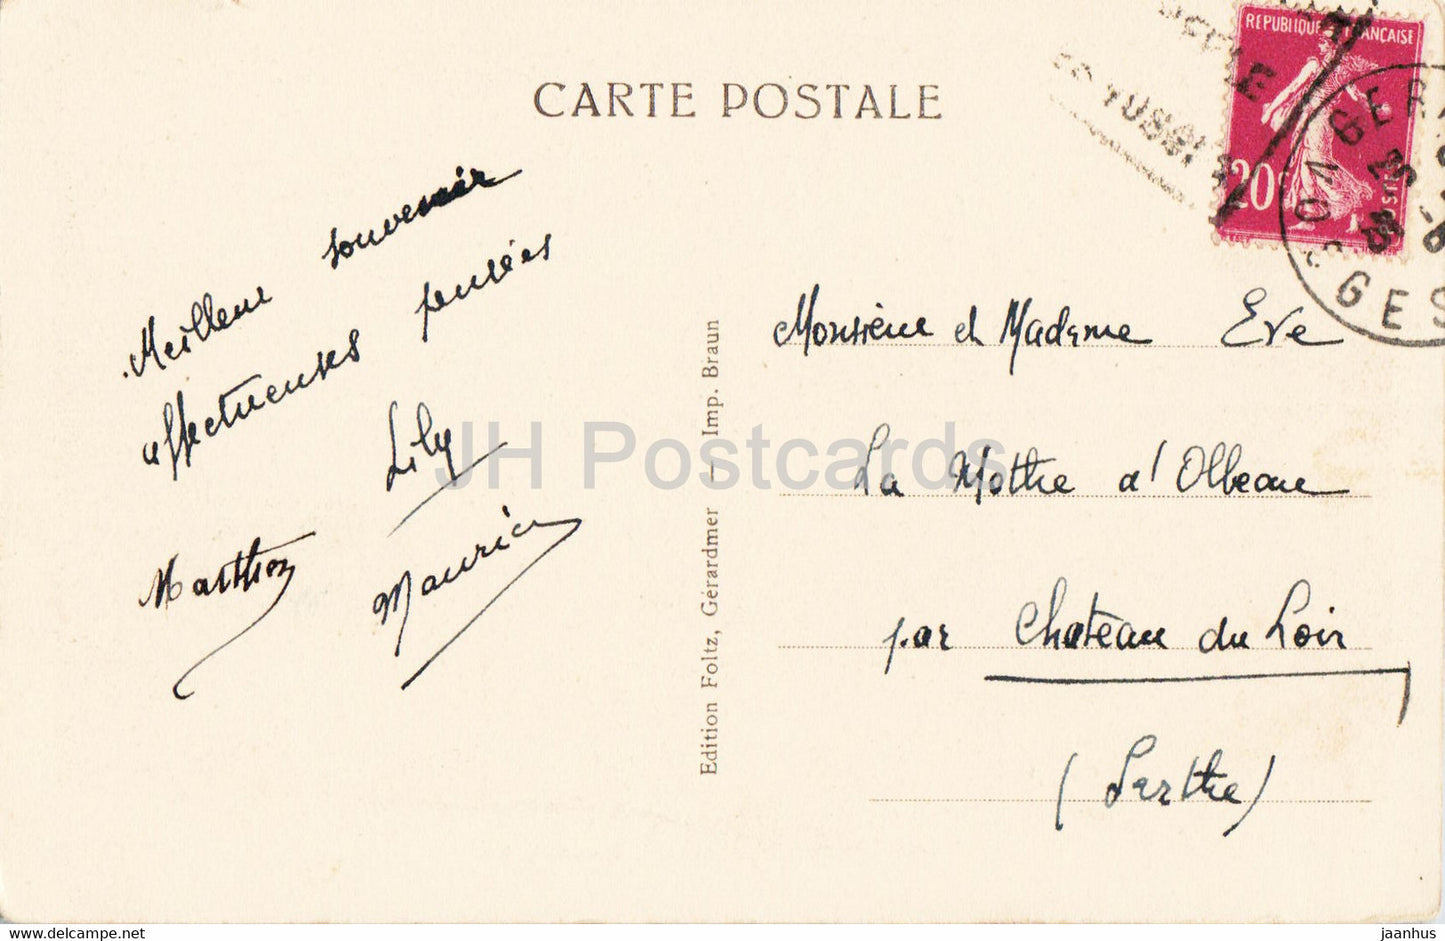 CARTE POSTALE
REPUBLIQUE FRANÇAISE
20c
POSTES
GER
VOSGES
Meilleur souvenir
affectueuses pensées
Lily
Marthon
Maurice
Edition Foltz, Gérardmer — Imp. Braun
Monsieur et Madame Eve
La Mothe d'Olbeau
par Chateau du Loir
(Sarthe)
JH Postcards
delcampe.net
jaanhus